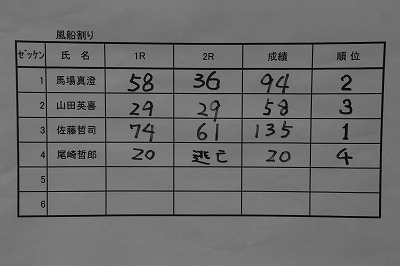 風船割り
ゼッケン 氏 名 1R 2R 成績 順 位
1 馬場真澄 58 36 94 2
2 山田英喜 29 29 58 3
3 佐藤哲司 74 61 135 1
4 尾崎哲郎 20 逃亡 20 4
5
6